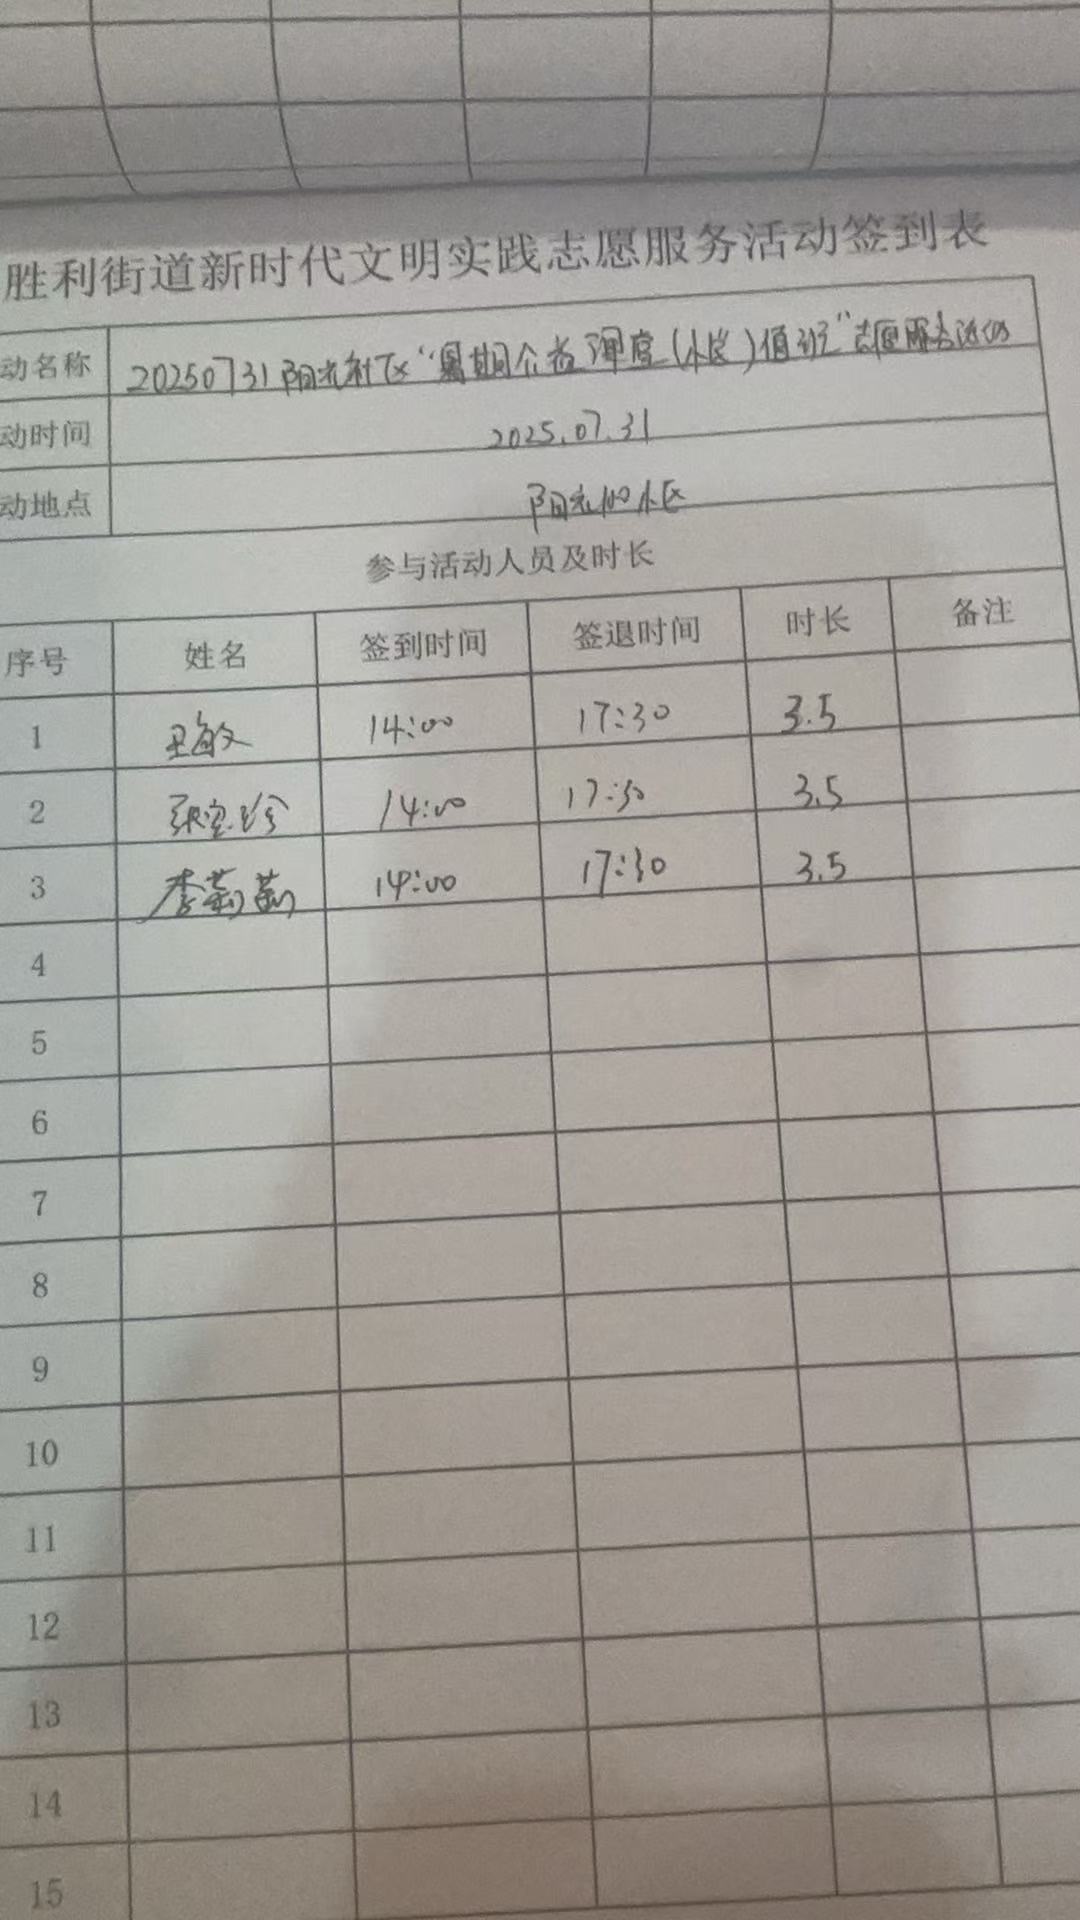 胜利街道新时代文明实践志愿服务活动签到表
动名称 20250731阳光社区“暑期公益课堂(小区)值班”志愿服务活动
动时间 2025.07.31
动地点 阳光100小区
参与活动人员及时长
序号 姓名 签到时间 签退时间 时长 备注
1 王敏 14:00 17:30 3.5
2 张宝珍 14:00 17:30 3.5
3 李莉莉 14:00 17:30 3.5
4
5
6
7
8
9
10
11
12
13
14
15